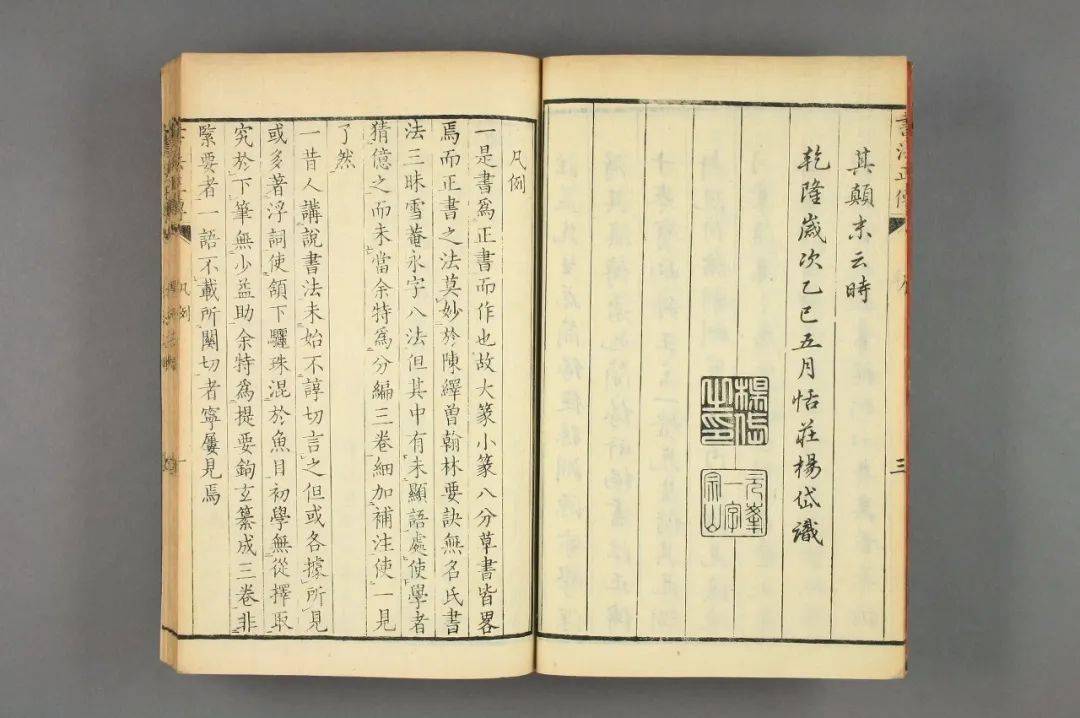 其顛末云時
乾隆歲次乙巳五月恬莊楊岱識
楊岱之印
一字
三
凡例
一是書爲正書而作也故大篆小篆八分草書皆畧
焉而正書之法莫妙於陳繹曾翰林要訣無名氏書
法三昧雪菴永字八法但其中有未顯語處使學者
猜億之而未當余特爲分編三卷細加補注使一見
了然
一昔人講說書法未始不諄切言之但或各據所見
或多著浮詞使頷下驪珠混於魚目初學無從擇取
究於下筆無少益助余特爲提要鉤玄纂成三卷非
緊要者一語不載所關切者寧屢見焉
凡例
一